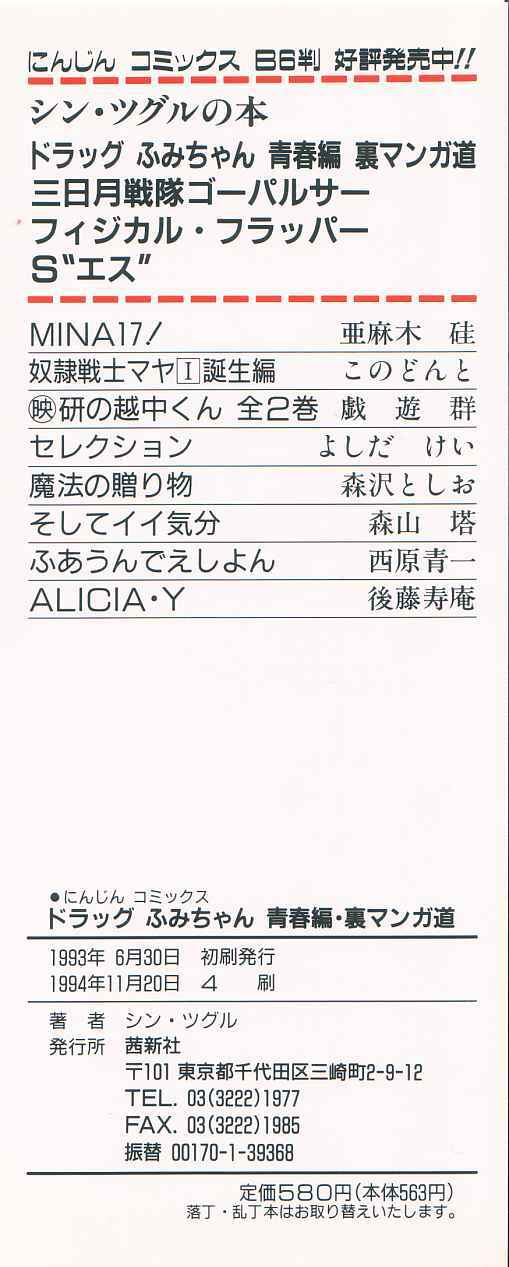 にんじん コミックス B6判 好評発売中!!
シン・ツグルの本
ドラッグ ふみちゃん 青春編 裏マンガ道
三日月戦隊ゴーパルサー
フィジカル・フラッパー
S“エス”
MINA17! 亜麻木 硅
奴隷戦士マヤⅠ誕生編 このどんと
㊙研の越中くん 全2巻 戯遊群
セレクション よしだ けい
魔法の贈り物 森沢としお
そしてイイ気分 森山 塔
ふあうんでえしよん 西原青一
ALICIA・Y 後藤寿庵
●にんじん コミックス
ドラッグ ふみちゃん 青春編・裏マンガ道
1993年 6月30日 初刷発行
1994年11月20日 4 刷
著者 シン・ツグル
発行所 茜新社
〒101 東京都千代田区三崎町2-9-12
TEL. 03(3222)1977
FAX. 03(3222)1985
振替 00170-1-39368
定価580円(本体563円)
落丁・乱丁本はお取り替えいたします。